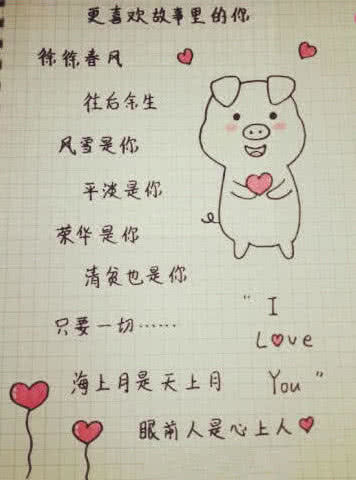 更喜欢故事里的你
徐徐春风
往后余生
风雪是你
平淡是你
荣华是你
清贫也是你
只要一切……
"I
Love
You"
海上月是天上月
眼前人是心上人